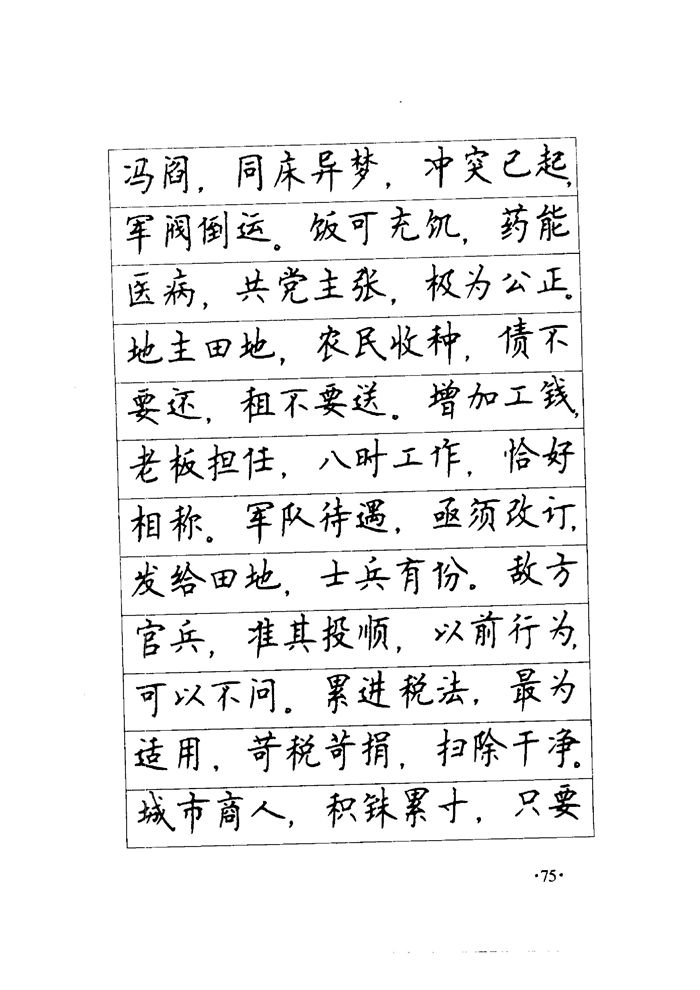 冯阎，同床异梦，冲突已起，
军阀倒运。饭可充饥，药能
医病，共党主张，极为公正。
地主田地，农民收种，债不
要还，租不要送。增加工钱，
老板担任，八时工作，恰好
相称。军队待遇，亟须改订，
发给田地，士兵有份。敌方
官兵，准其投顺，以前行为，
可以不问。累进税法，最为
适用，苛税苛捐，扫除干净。
城市商人，积铢累寸，只要
·75·